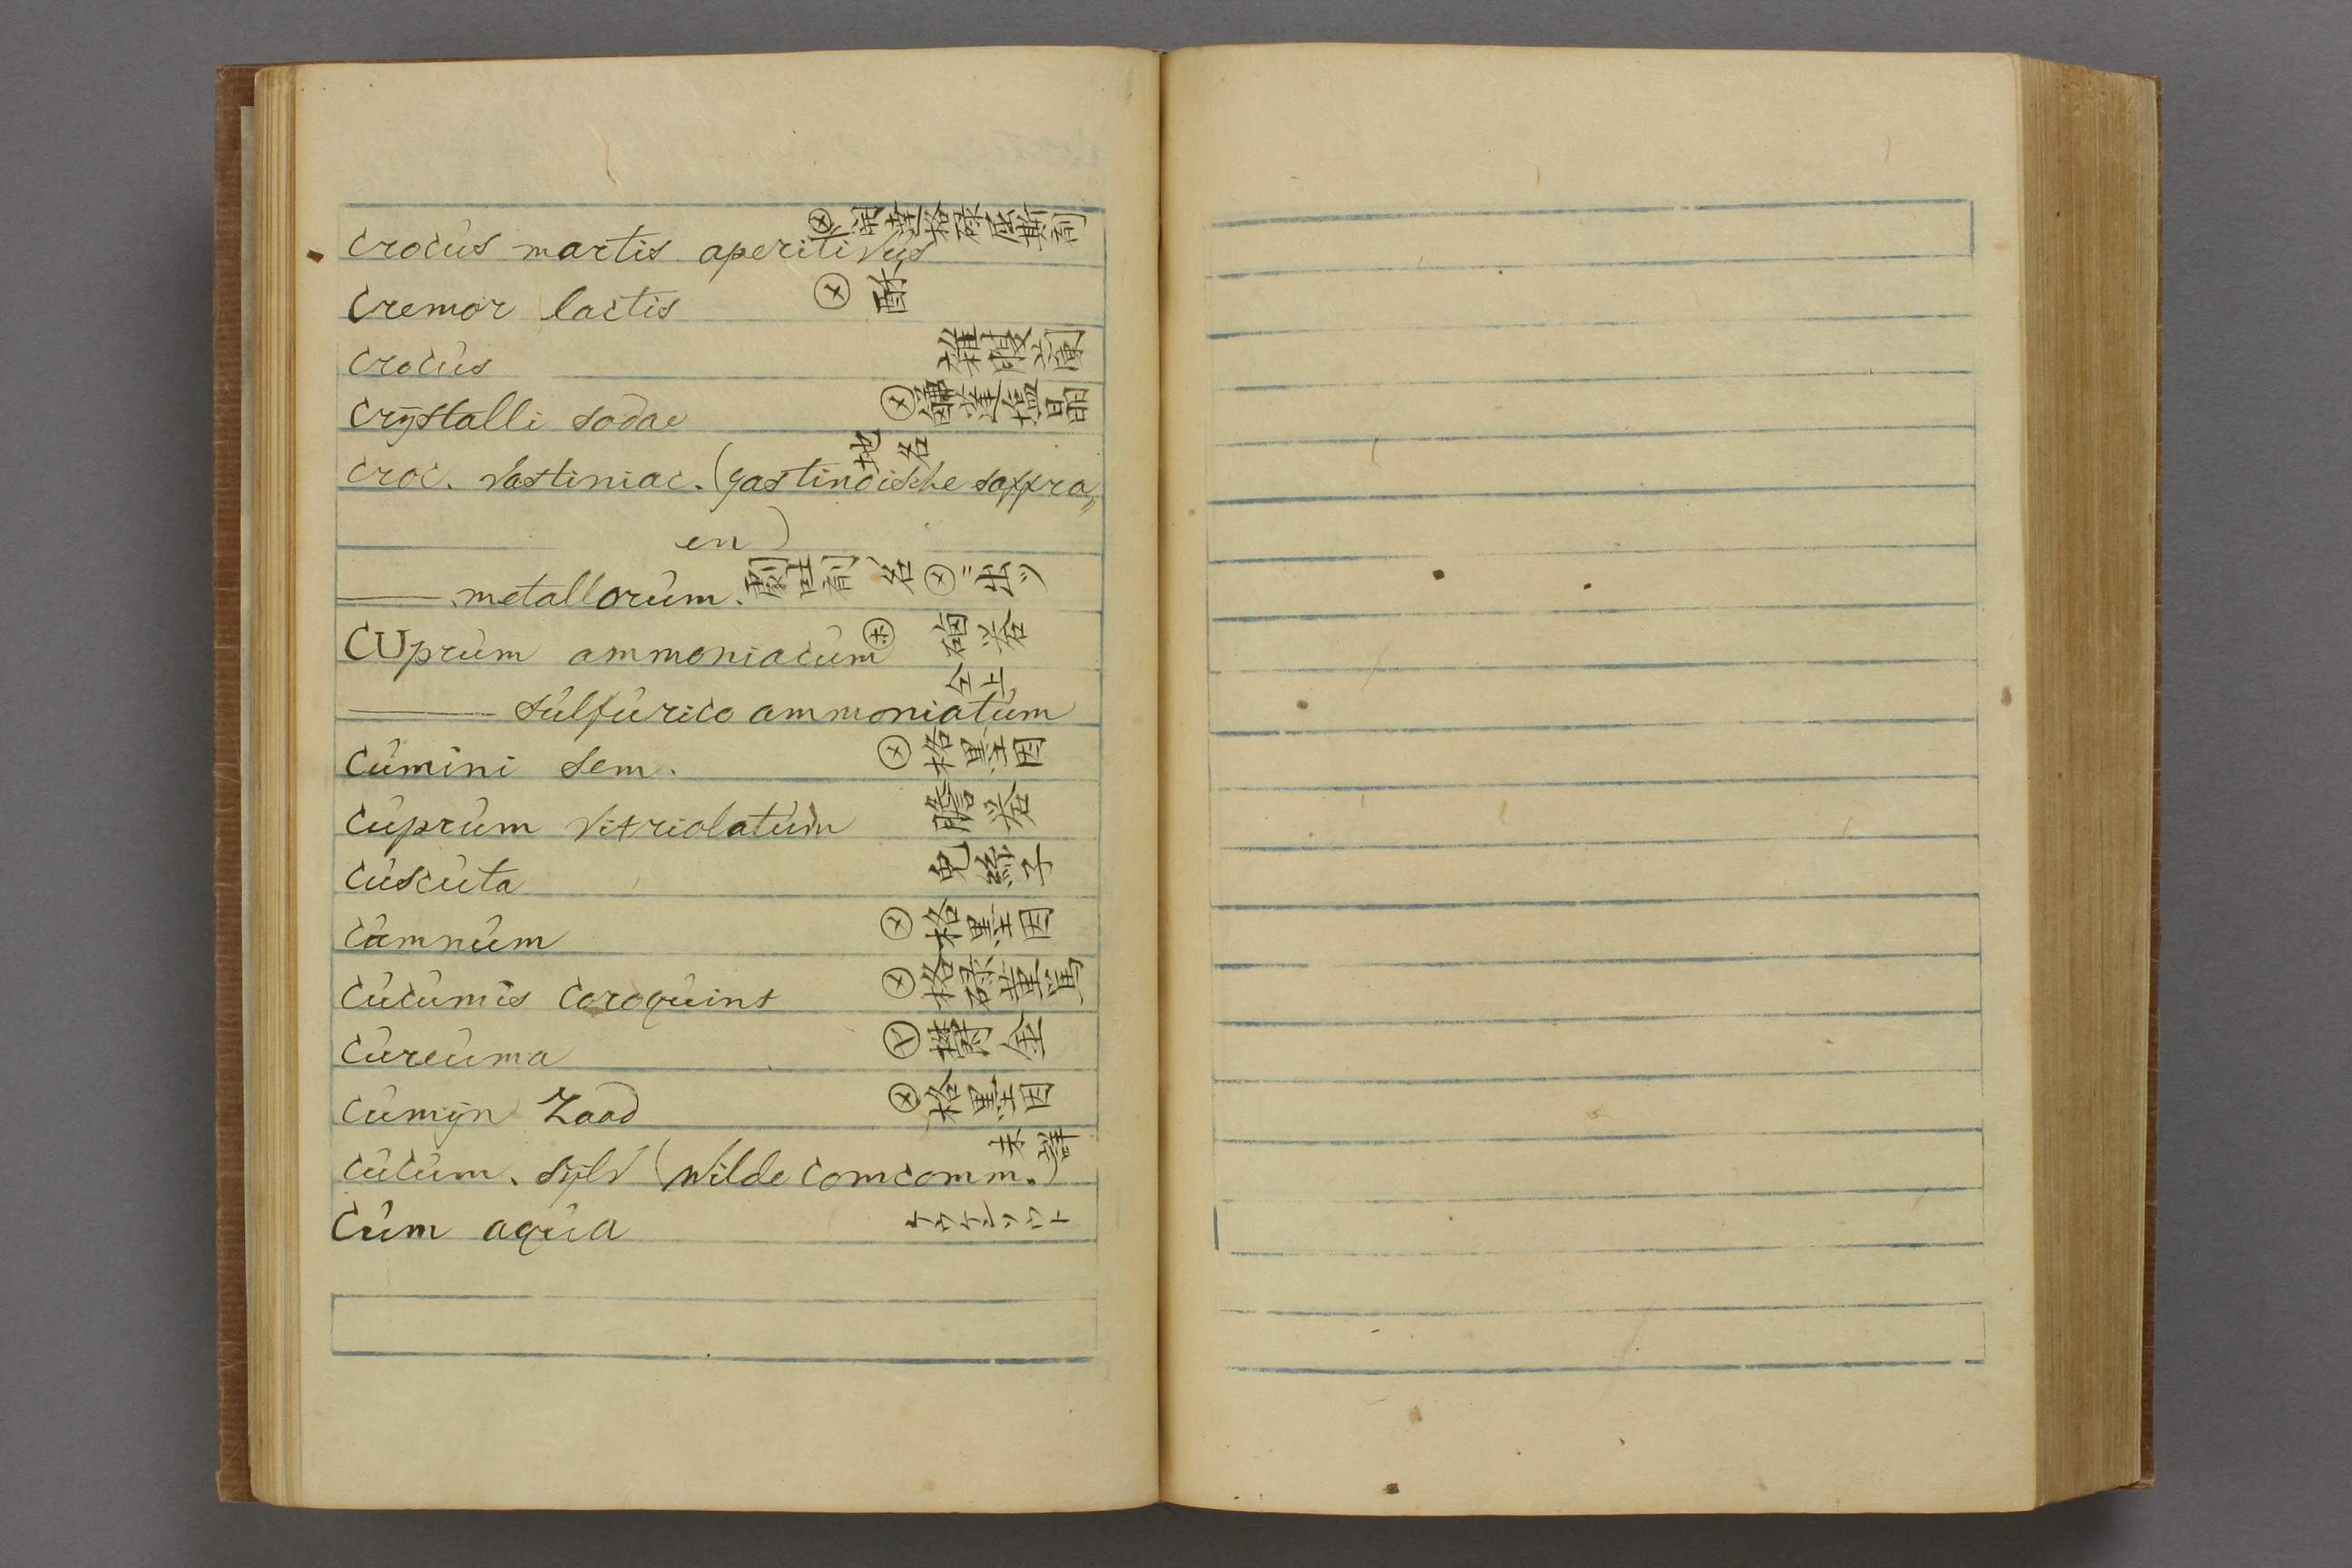 Crocus martis aperitivus ⊗ 泯達格碌屈斯剤
Cremor lactis ⊗ 酥
Crocus 雑腹蘭
Crÿstalli sodae ⊗ 蓬塩晶
Croc. Vastiniac. (gastinoische saffra„ 地名
en)
—— metallorum. 劇吐剤ノ名 ⊗ ニ出ツ
CUprum ammoniacum ㋭ 硇
—— sulfurico ammoniatum 仝上
Cumini sem. ⊗ 格黒垩因
Cuprum vitriolatum 膽
Cuscuta 兎絲子
Cumnum ⊗ 格黒垩因
Cucumis Coroquint ⊗ 格碌菫
Curcuma 鬱金
Cumÿn Zaad ⊗ 格黒垩因
Cucum. sÿlv (Wilde Comcomm.) 未詳
Cum aqua